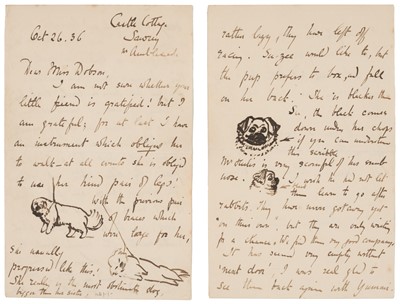 Castle Cottage
Oct 26. 36 Sawrey
nr Ambleside
Dear Miss Dobson,
I am not sure whether your
little friend is grateful! but I
am grateful; for at last I have
an instrument which obliges her
to walk - at all events she is obliged
to use her hind pair of legs!
With the previous pair
of braces which
were large for her,
she usually
progressed like this!
She really is the most obstinate dog,
bigger than
rather leggy, they have left off
racing. Suzee would like to, but
the pup prefers to box, and fall
on her back. She is blacker than
Su, the black comes
down under her chops
if you can understand
this scribble
is very scornful of his snub
nose. I wish he did not let
them learn to go after
rabbits. They have never got away yet
"on their own", but they are only waiting
for a chance. We find them very good company.
It has seemed very empty without
"next door". I was real glad to
see them back again with Yummi.